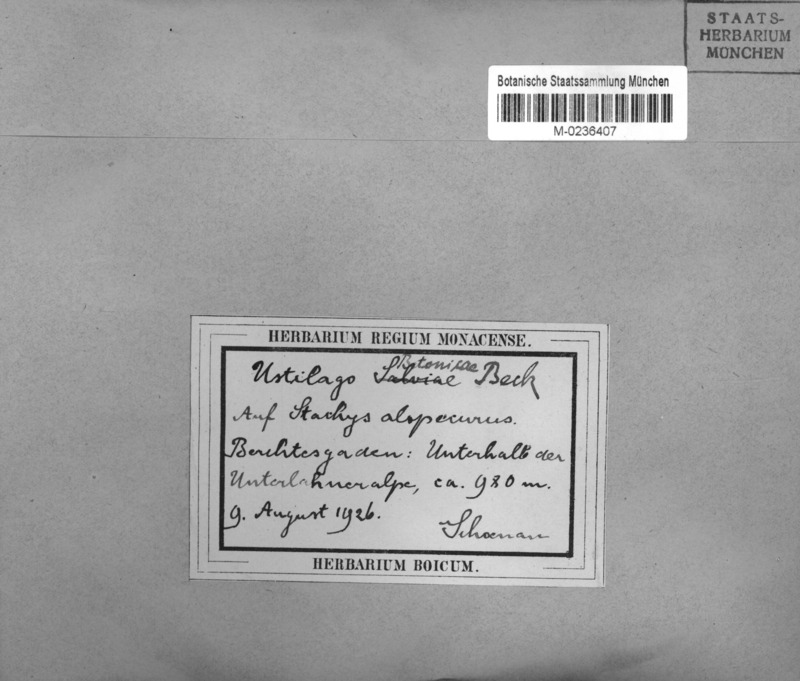 STAATS-
HERBARIUM
MÜNCHEN
Botanische Staatssammlung München
M-0236407
HERBARIUM REGIUM MONACENSE.
Ustilago Salviae Betonicae Beck
Auf Stachys alopecurus.
Berchtesgaden: Unterhalb der
Unterlahneralpe, ca. 980 m.
9. August 1926.
Schoenau
HERBARIUM BOICUM.